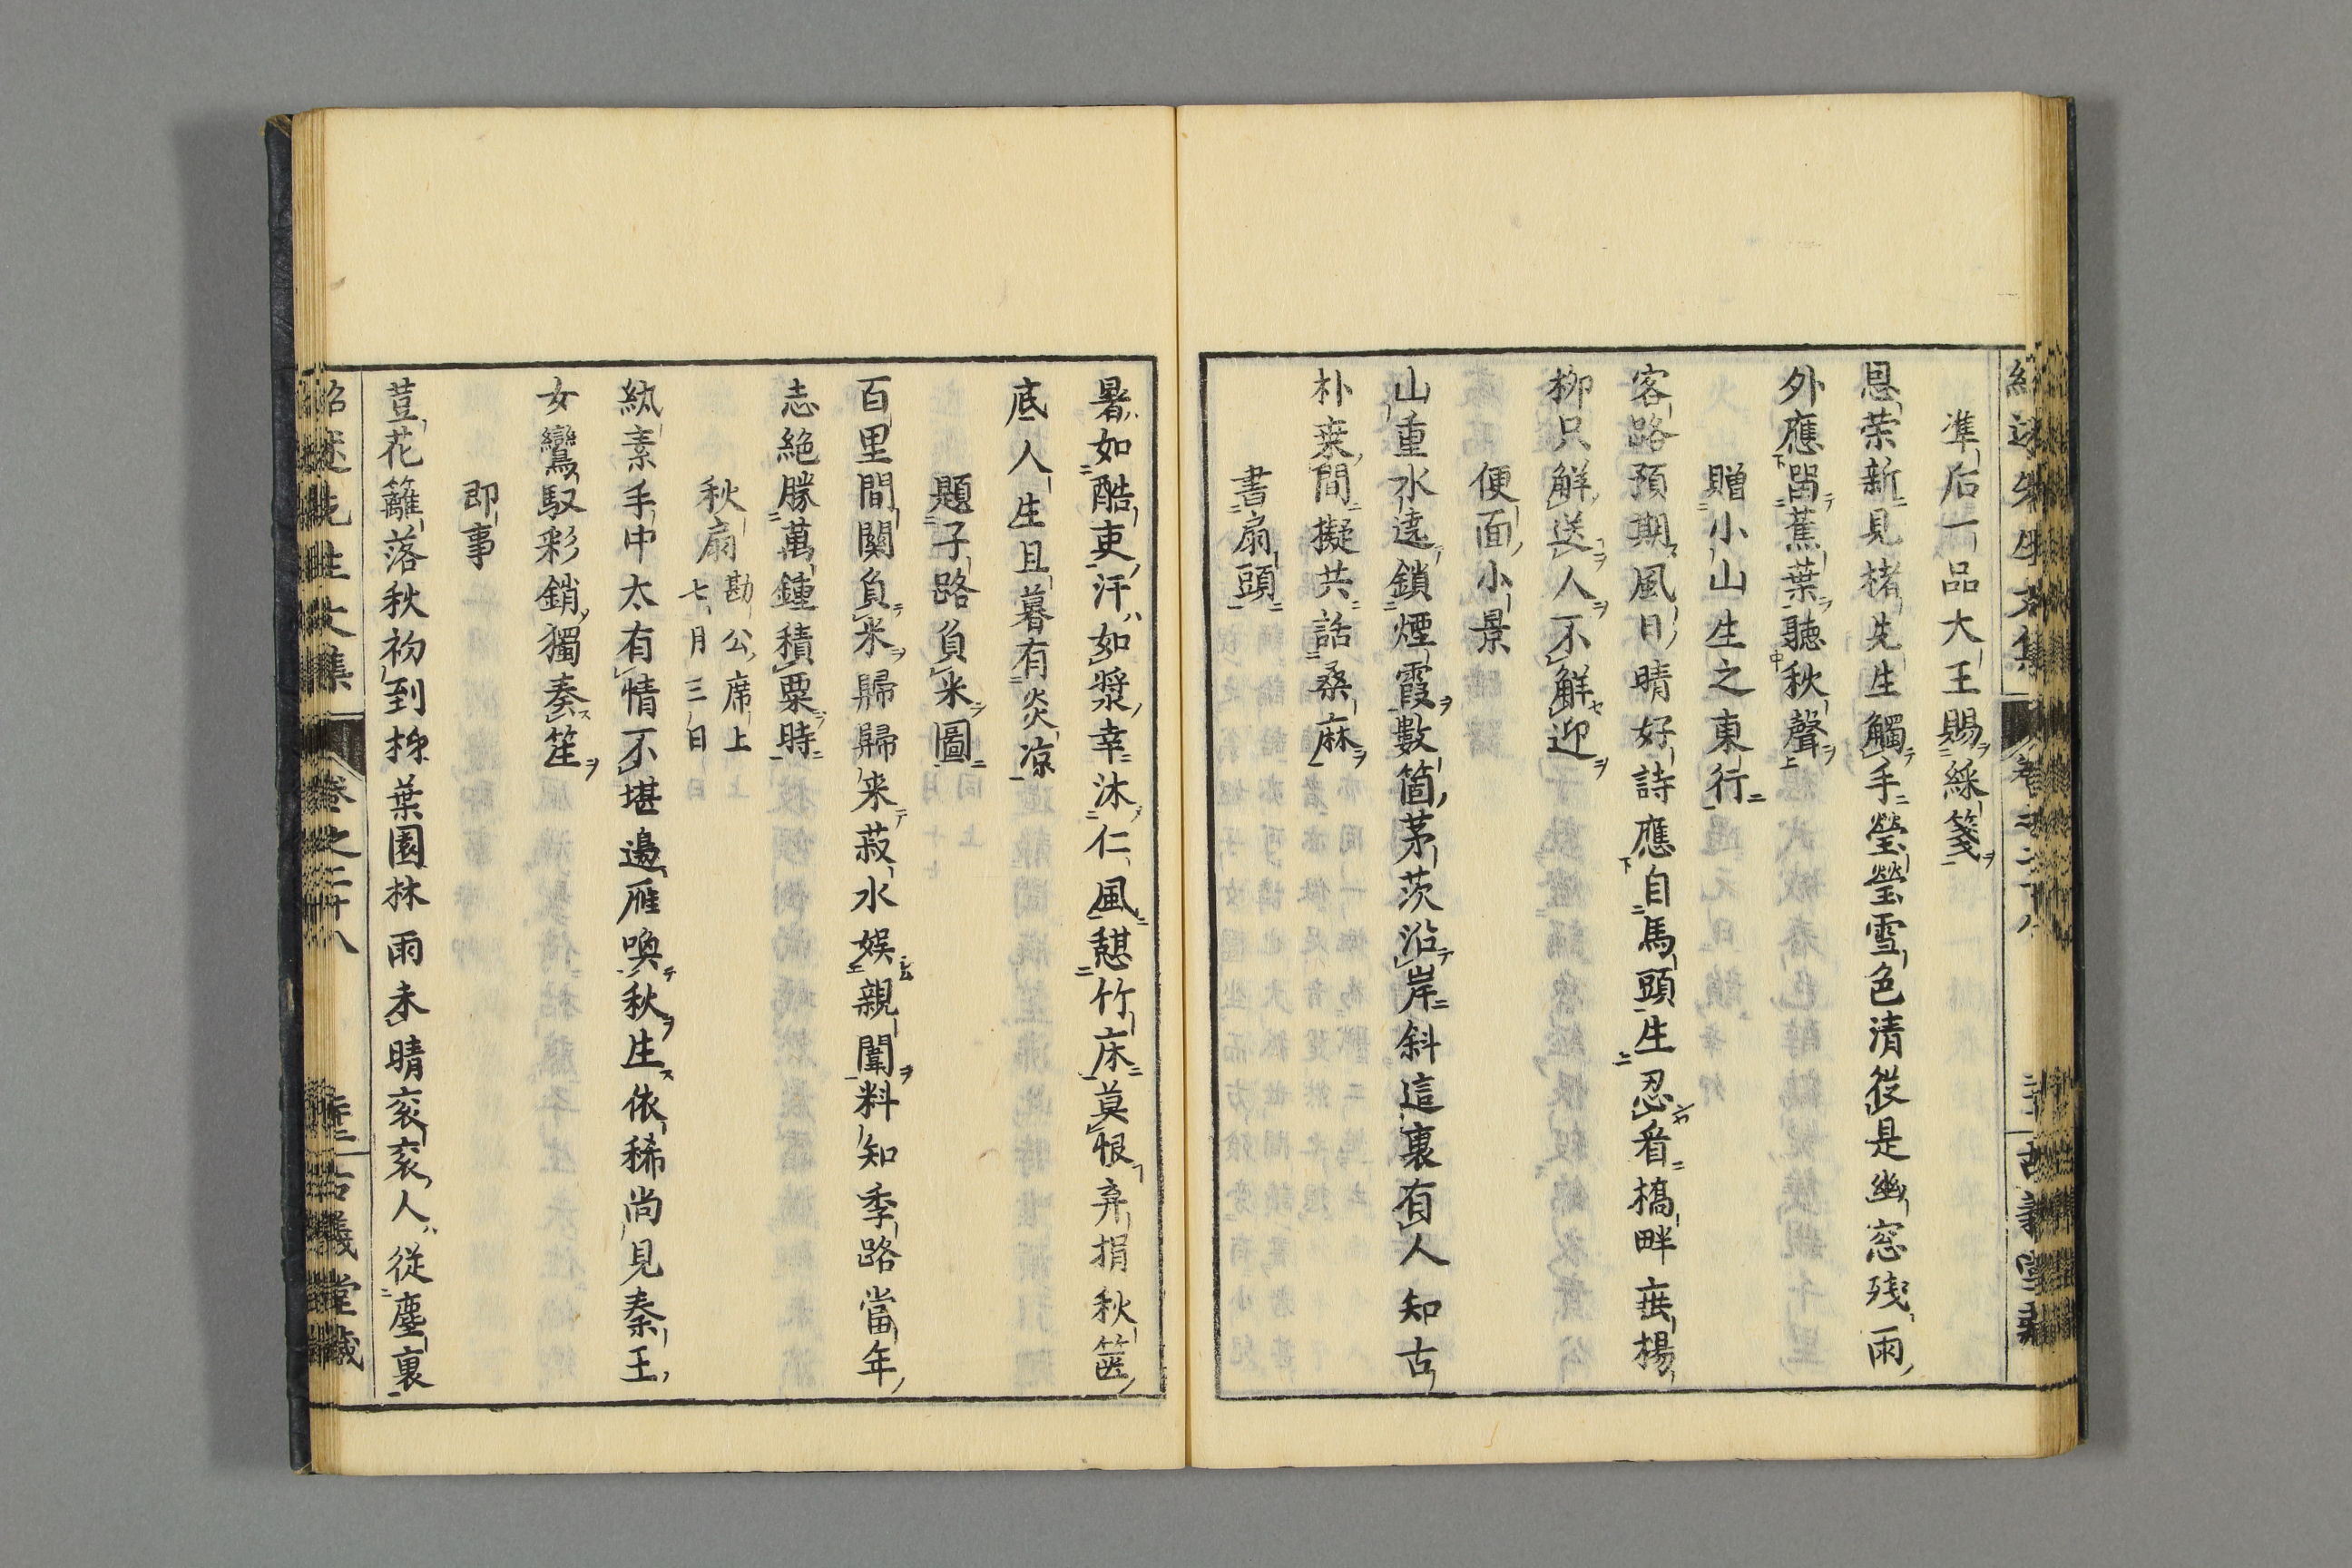 準后一品大王賜綵箋
恩荣新見楮先生觸手瑩瑩雪色清從是幽窓残雨
外應畄蕉葉聴秋聲
贈小山生之東行
客路預期風日晴好詩應自馬頭生忍看橋畔垂楊
柳只解送人不解迎
便面小景
山重水遠鎖煙霞數箇茅茨沿岸斜這裏有人知古
朴来間擬共話桑麻
書扇頭
暑如酷吏汗如漿幸沐仁風憇竹床莫恨弃捐秋篋
底人生且暮有炎凉
題子路負米圖
百里間關負米歸歸来菽水娯親闈料知季路當年
志絶勝萬鍾積粟時
秋扇 勘公席上 七月三日
紈素手中太有情不堪邉雁喚秋生依稀尚見秦王
女鸞馭彩銷獨奏笙
即事
荳花籬落秋初到栁葉園林雨未晴衮衮人從塵裏
紹述先生文集 卷之二十八 古義堂藏